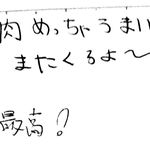 肉めっちゃうまい
またくるよ〜
最高!